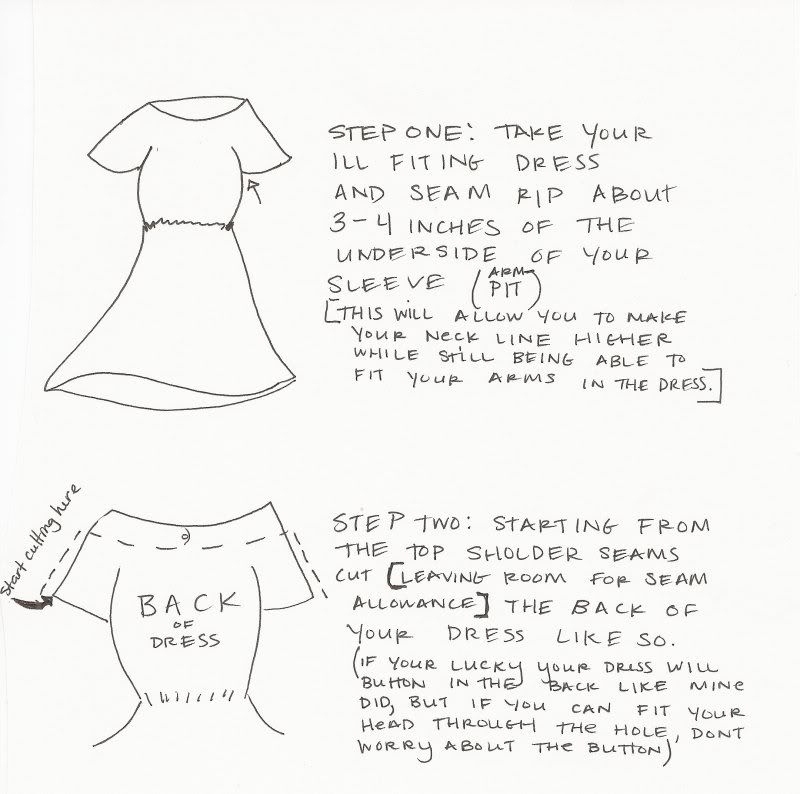 STEP ONE: TAKE YOUR
ILL FITING DRESS
AND SEAM RIP ABOUT
3-4 INCHES OF THE
UNDERSIDE OF YOUR
SLEEVE (ARM PIT)
[THIS WILL ALLOW YOU TO MAKE
YOUR NECK LINE HIGHER
WHILE STILL BEING ABLE TO
FIT YOUR ARMS IN THE DRESS.]
Start cutting here
BACK
OF
DRESS
STEP TWO: STARTING FROM
THE TOP SHOLDER SEAMS
CUT [LEAVING ROOM FOR SEAM
ALLOWANCE] THE BACK OF
YOUR DRESS LIKE SO.
(IF YOUR LUCKY YOUR DRESS WILL
BUTTON IN THE BACK LIKE MINE
DID, BUT IF YOU CAN FIT YOUR
HEAD THROUGH THE HOLE, DONT
WORRY ABOUT THE BUTTON)